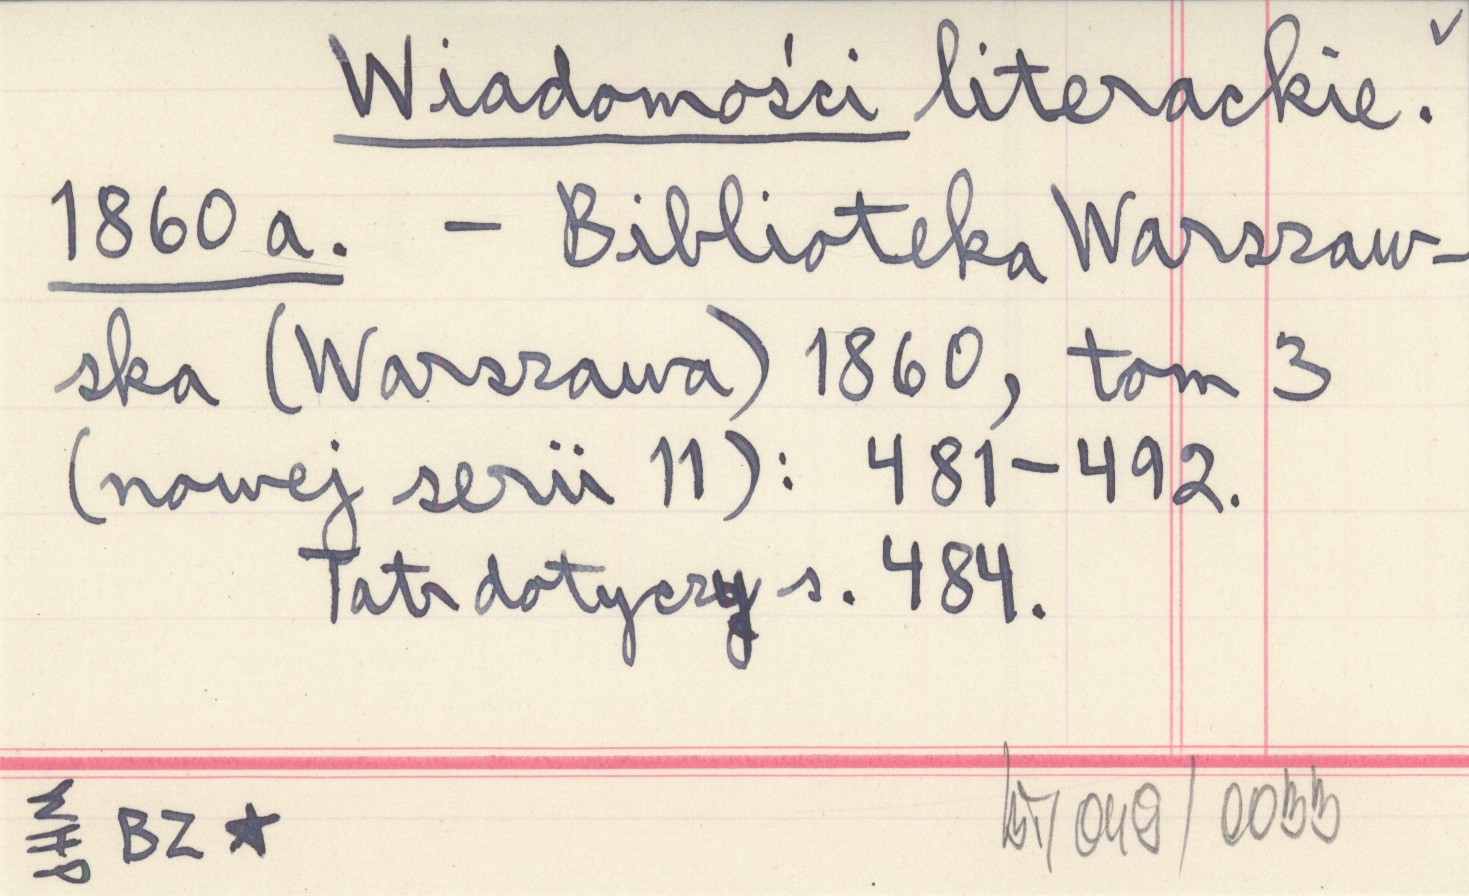 Wiadomości literackie.
1860 a. - Biblioteka Warszaw-
ska (Warszawa) 1860, tom 3
(nowej serii 11): 481-492.
Tatr dotyczy s. 484.
WHP BZ ★
049/0033